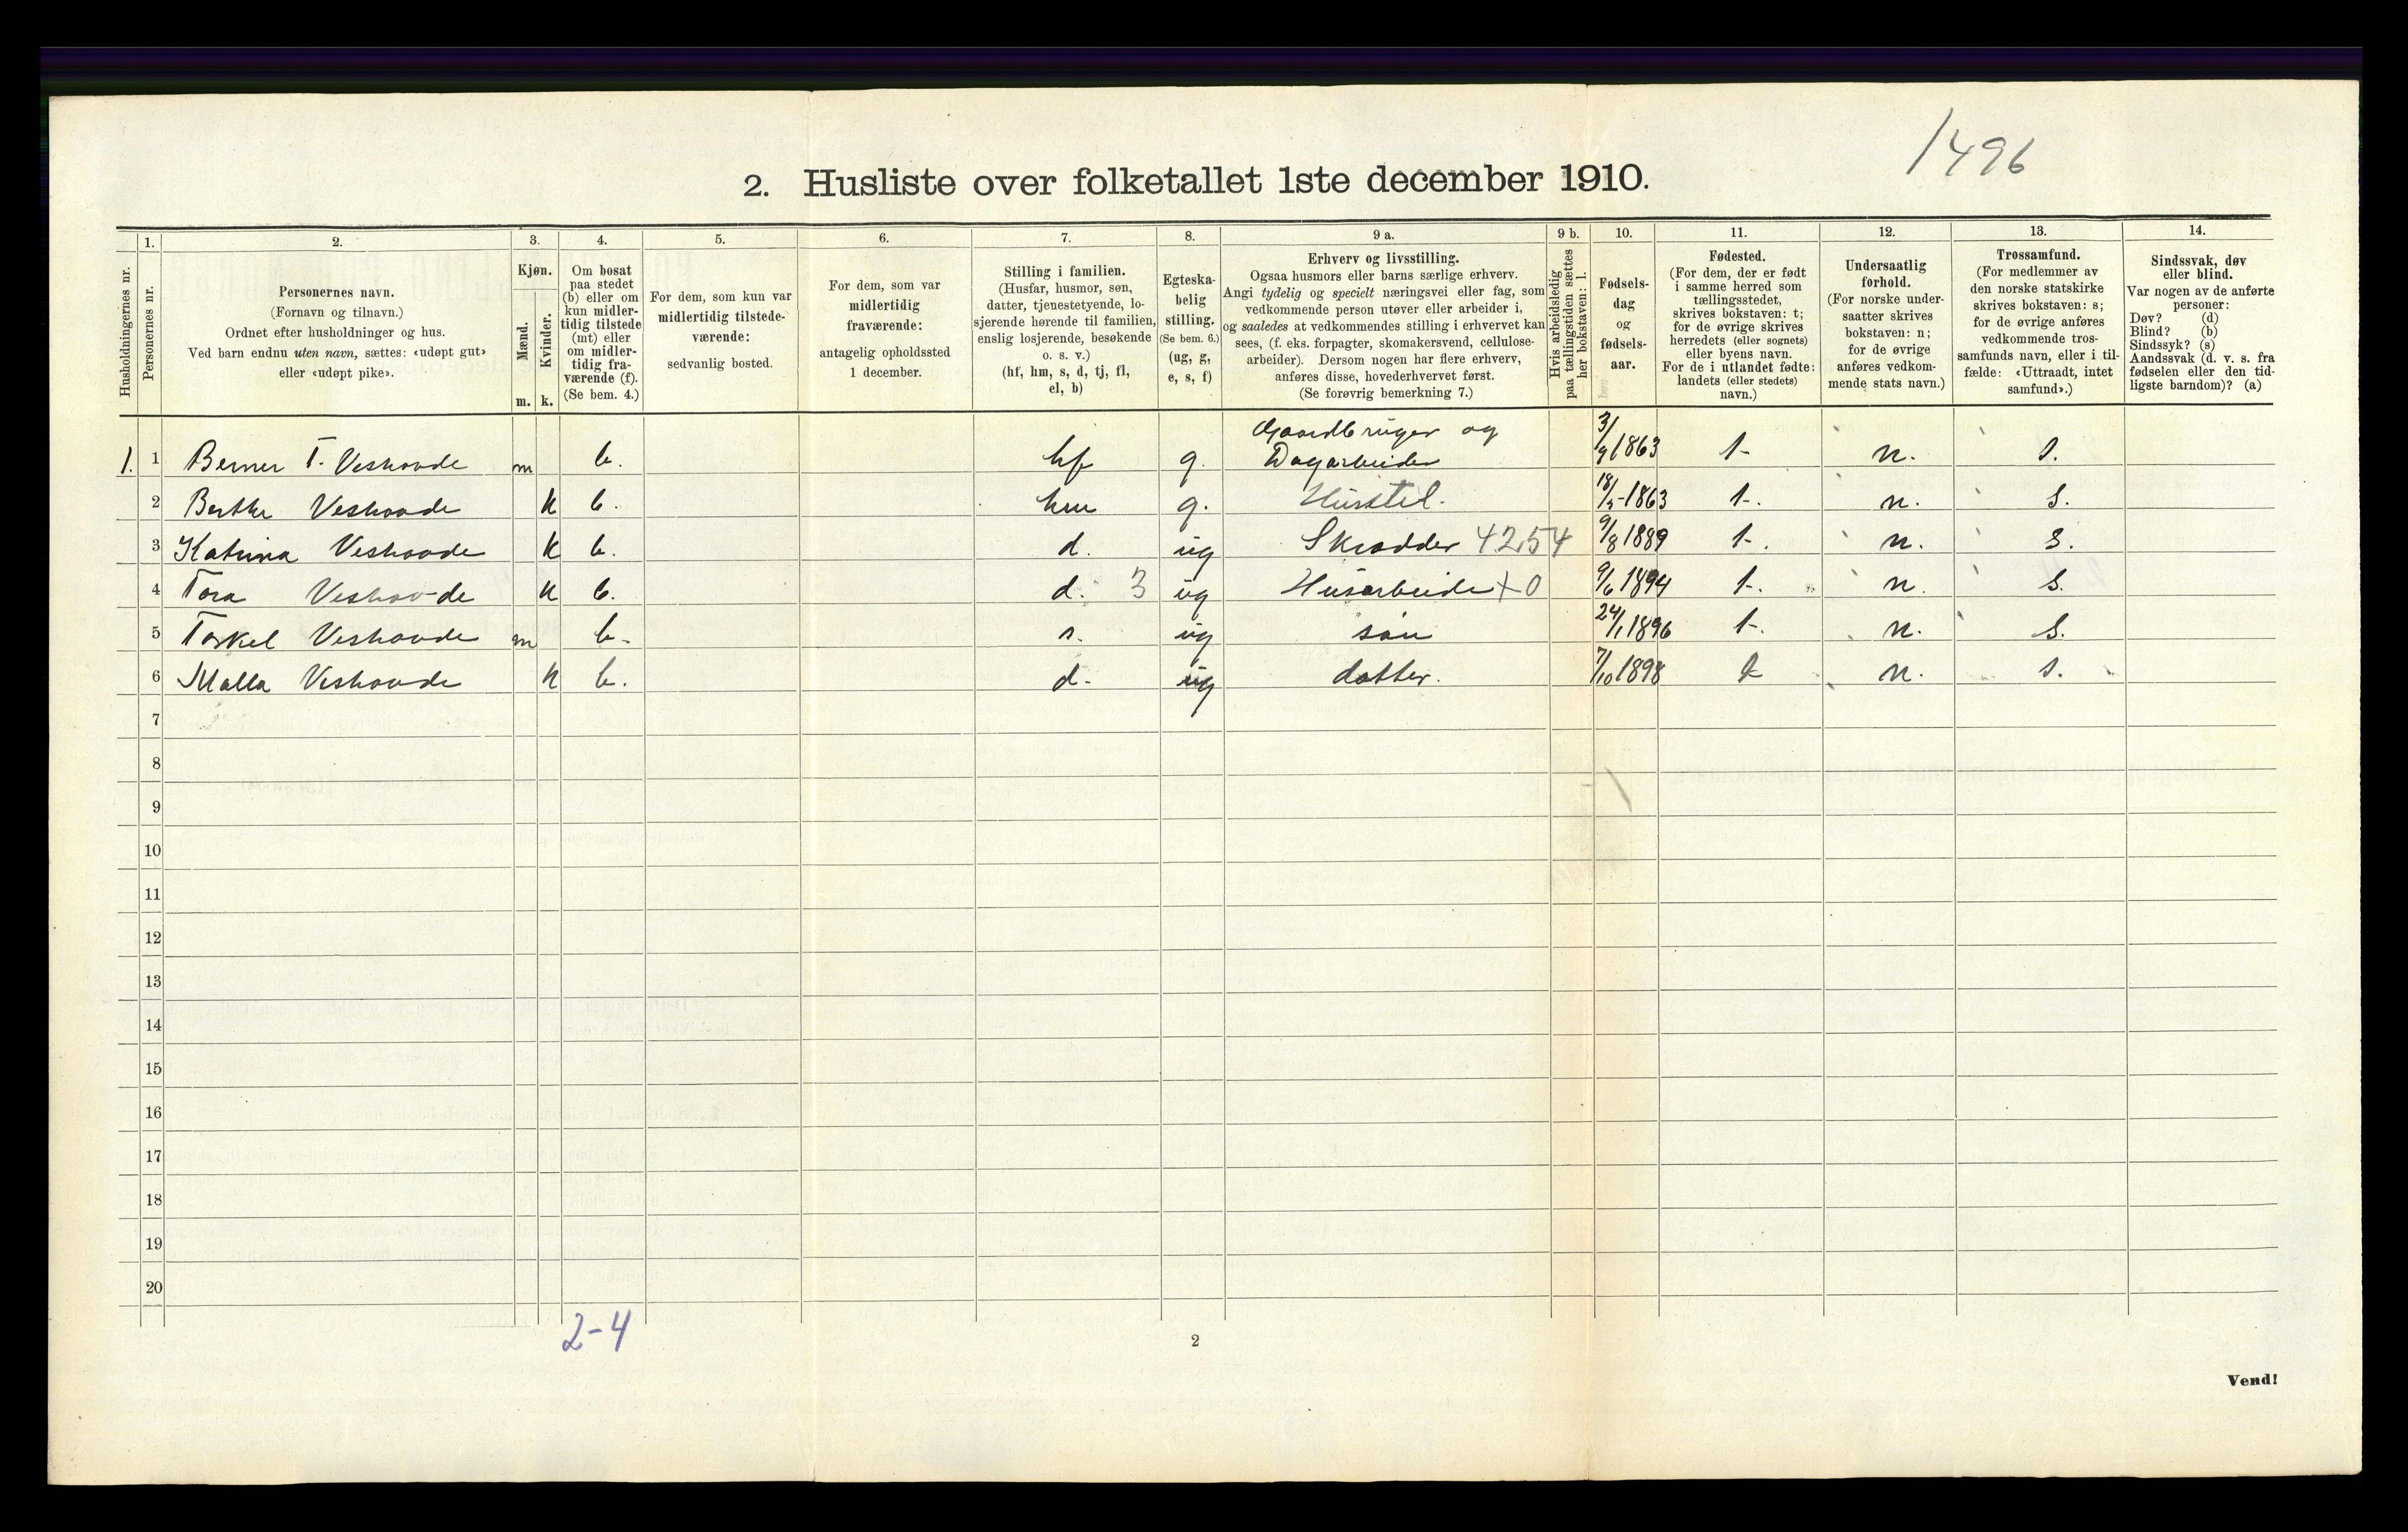 1496
2. Husliste over folketallet 1ste december 1910.
Husholdningernes nr.
1.
Personernes nr.
2.
Personernes navn.
(Fornavn og tilnavn.)
Ordnet efter husholdninger og hus.
Ved barn endnu uten navn, sættes: «udøpt gut»
eller «udøpt pike».
3.
Kjøn.
Mænd.
Kvinder.
m. k.
4.
Om bosat
paa stedet
(b) eller om
kun midler-
tidig tilstede
(mt) eller
om midler-
tidig fra-
værende (f).
(Se bem. 4.)
5.
For dem, som kun var
midlertidig tilstede-
værende:
sedvanlig bosted.
6.
For dem, som var
midlertidig
fraværende:
antagelig opholdssted
1 december.
7.
Stilling i familien.
(Husfar, husmor, søn,
datter, tjenestetyende, lo-
sjerende hørende til familien,
enslig losjerende, besøkende
o. s. v.)
(hf, hm, s, d, tj, fl,
el, b)
8.
Egteska-
belig
stilling.
(Se bem. 6.)
(ug, g,
e, s, f)
9 a.
Erhverv og livsstilling.
Ogsaa husmors eller barns særlige erhverv.
Angi tydelig og specielt næringsvei eller fag, som
vedkommende person utøver eller arbeider i,
og saaledes at vedkommendes stilling i erhvervet kan
sees, (f. eks. forpagter, skomakersvend, cellulose-
arbeider). Dersom nogen har flere erhverv,
anføres disse, hovederhvervet først.
(Se forøvrig bemerkning 7.)
9 b.
Hvis arbeidsledig
paa tællingstiden sættes
her bokstaven: l.
10.
Fødsels-
dag
og
fødsels-
aar.
11.
Fødested.
(For dem, der er født
i samme herred som
tællingsstedet,
skrives bokstaven: t;
for de øvrige skrives
herredets (eller sognets)
eller byens navn.
For de i utlandet fødte:
landets (eller stedets)
navn.)
12.
Undersaatlig
forhold.
(For norske under-
saatter skrives
bokstaven: n;
for de øvrige
anføres vedkom-
mende stats navn.)
13.
Trossamfund.
(For medlemmer av
den norske statskirke
skrives bokstaven: s;
for de øvrige anføres
vedkommende tros-
samfunds navn, eller i til-
fælde: «Uttraadt, intet
samfund».)
14.
Sindssvak, døv
eller blind.
Var nogen av de anførte
personer:
Døv? (d)
Blind? (b)
Sindssyk? (s)
Aandssvak (d. v. s. fra
fødselen eller den tid-
ligste barndom)? (a)
1. 1 Berner T. Veshovde m b. hf g. Gaardbruger og Dagarbeider 3/9 1863 t- n. s.
2 Berthe Veshovde k b. hm g. Husstel. 18/5-1863 t-. n. s.
3 Katrina Veshovde k b. d. ug Skrædder 4254 9/8 1889 t-. n. s.
4 Tora Veshovde k b. d. 3 ug Husarbeide +0 9/6 1894 t-. n. s.
5 Torkel Veshovde m b- s. ug søn 24/1 1896 t-. n. s.
6 Malla Veshovde k b. d- ug datter. 7/10 1898 t n. s.
7
8
9
10
11
12
13
14
15
16
17
18
19
20
2-4
2
Vend!